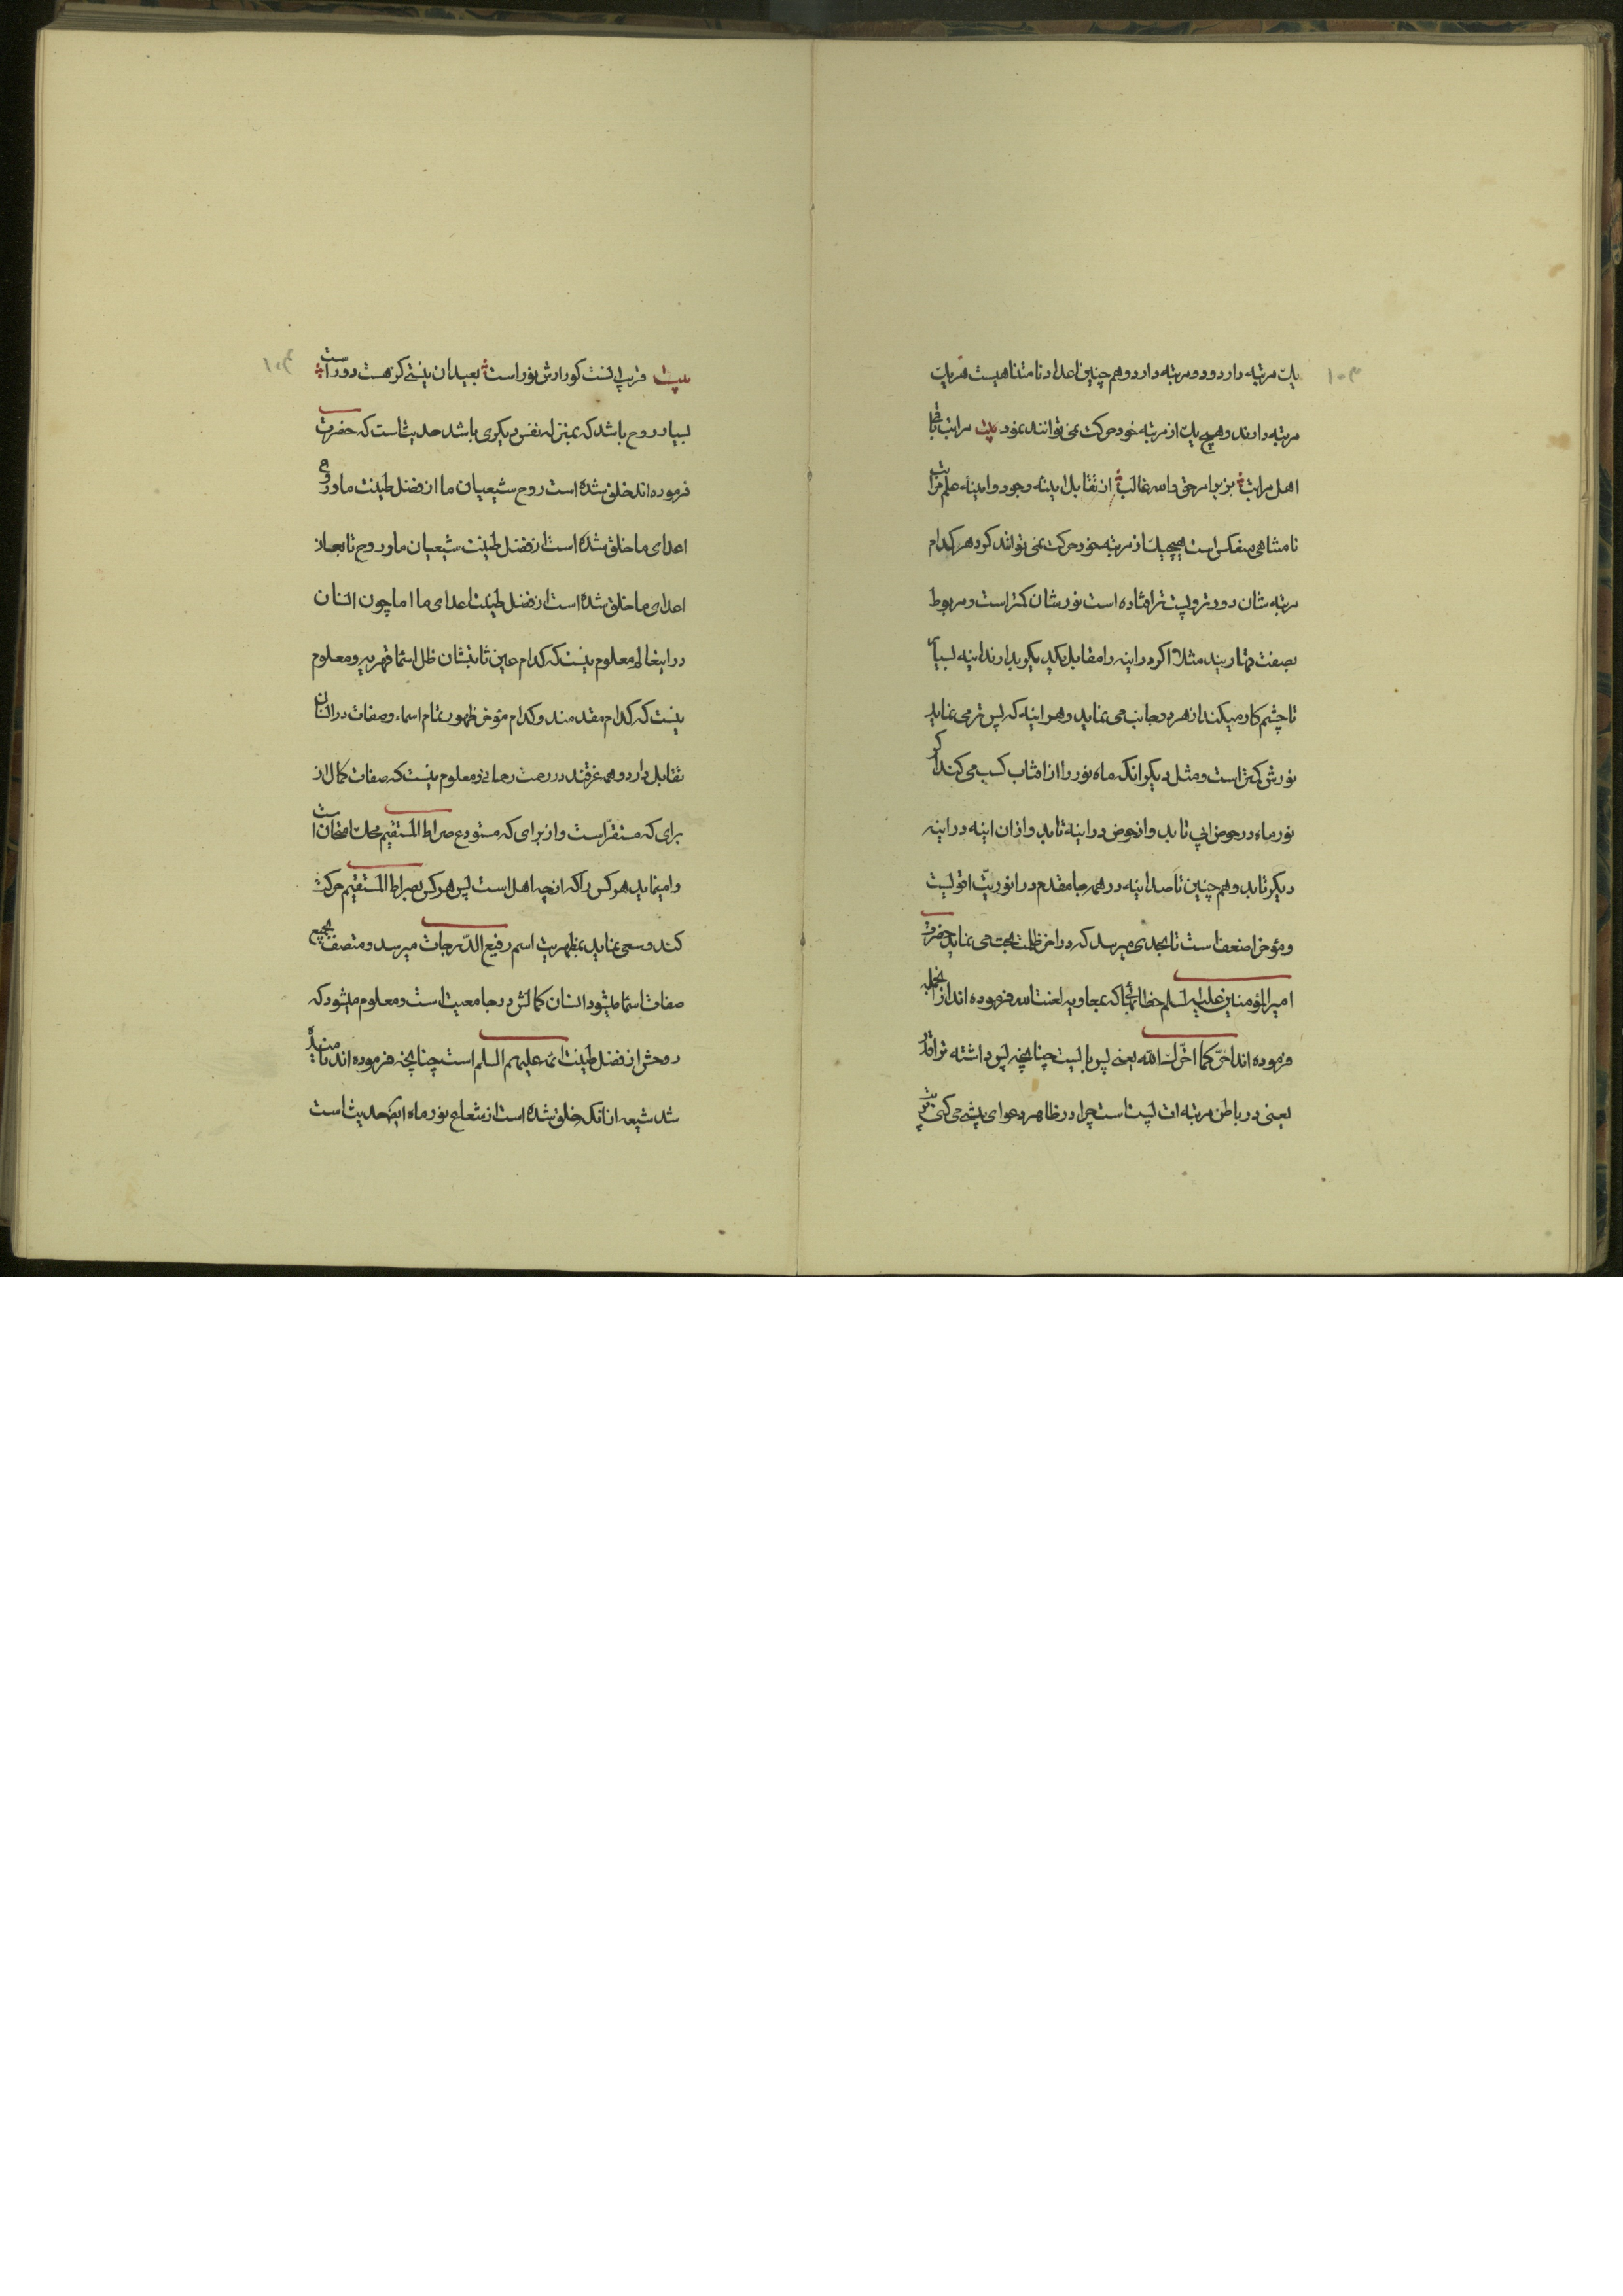 ۱۰۳
یک مرتبه دارد و دو مرتبه دارد و هم چنین اعداد نامتناهیست هر یک
مرتبه دارند و هیچ یک از مرتبه خود حرکت نمی توانند نمود بیت مراتب باقی
اهل مراتب بزیر امر حق والله غالب از تقابل اینه وجود و اینه علم مراتب
نامتناهی منعکس است هیچیک از مرتبه خود حرکت نمی توانند کرد هر کدام
مرتبه شان دورتر و پست تر افتاده است نورشان کمتر است و مربوط
بصفت قهاریند مثلا اگر دو اینه را مقابل یکدیگر بدارند اینه بسیار
تا چشم کار میکند از هر دو جانب می نماید و هر اینه که پس تر می نماید
نورش کمتر است و مثل دیگر انکه ماه نور را از افتاب کسب می کند اگر
نور ماه در حوض ابی تابد و از حوض در اینه تابد و از ان اینه در اینه
دیگر تابد و هم چنین تا صد اینه در همه جا مقدم در انوریت اقویست
و مؤخر اضعف است تا بحدی میرسد که در اخر ظلمت بحت می نماید حضرت
امیرالمؤمنین علیه السلم خطابها که بمعاویه لعنت الله فرموده اند از انجمله
فرموده اند اخّر کما اخّرک الله یعنی پس بایست چنانچه پس داشته ترا قدر
یعنی در باطن مرتبه ات پست است چرا در ظاهر دعوای پیشی می کنی
۱۰۴
بیت قریب انست کورا رش نور است بعید ان نیستی کز هست دور است
بسیار روح باشد که بمنزله نفس دیگری باشد حدیث است که حضرت
فرموده اند خلق شده است روح شیعیان ما از فضل طینت ما و روح
اعدای ما خلق شده است از فضل طینت شیعیان ما و روح تابعان
اعدای ما خلق شده است از فضل طینت اعدای ما اما چون انسان
در اینعالم معلوم نیست که کدام عین ثابتشان ظل اسما قهریه و معلوم
نیست که کدام مقدمند و کدام مؤخر ظهور تمام اسماء و صفات در انسان
تقابل دارد و همه غرقند در رحمت رحمانی و معلوم نیست که صفات کمال از
برای که مستقر است و از برای که مستودع صراط المستقیم محک امتحان است
وامینماید هر کس را که انچه اهل است پس هر کس بصراط المستقیم حرکت
کند و سعی نماید بمظهریت اسم رفیع الدّرجات میرسد و متصف بجمیع
صفات اسما میشود انسان کمالش در جامعیت است و معلوم میشود که
روحش از فضل طینت ائمه علیهم السلم است چنانچه فرموده اند نامیده
شد شیعه از انکه خلق شده است از شعاع نور ماه ایضا حدیث است